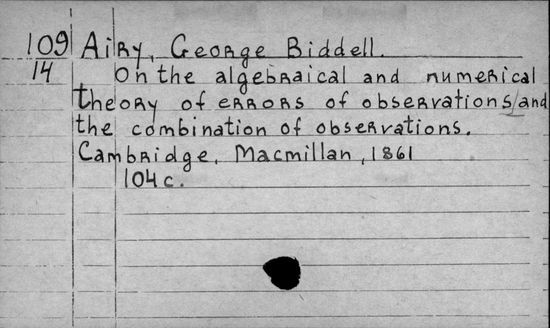 109 Airy, George Biddell.
14 On the algebraical and numerical
theory of errors of observations/and
the combination of observations.
Cambridge, Macmillan, 1861
104 c.